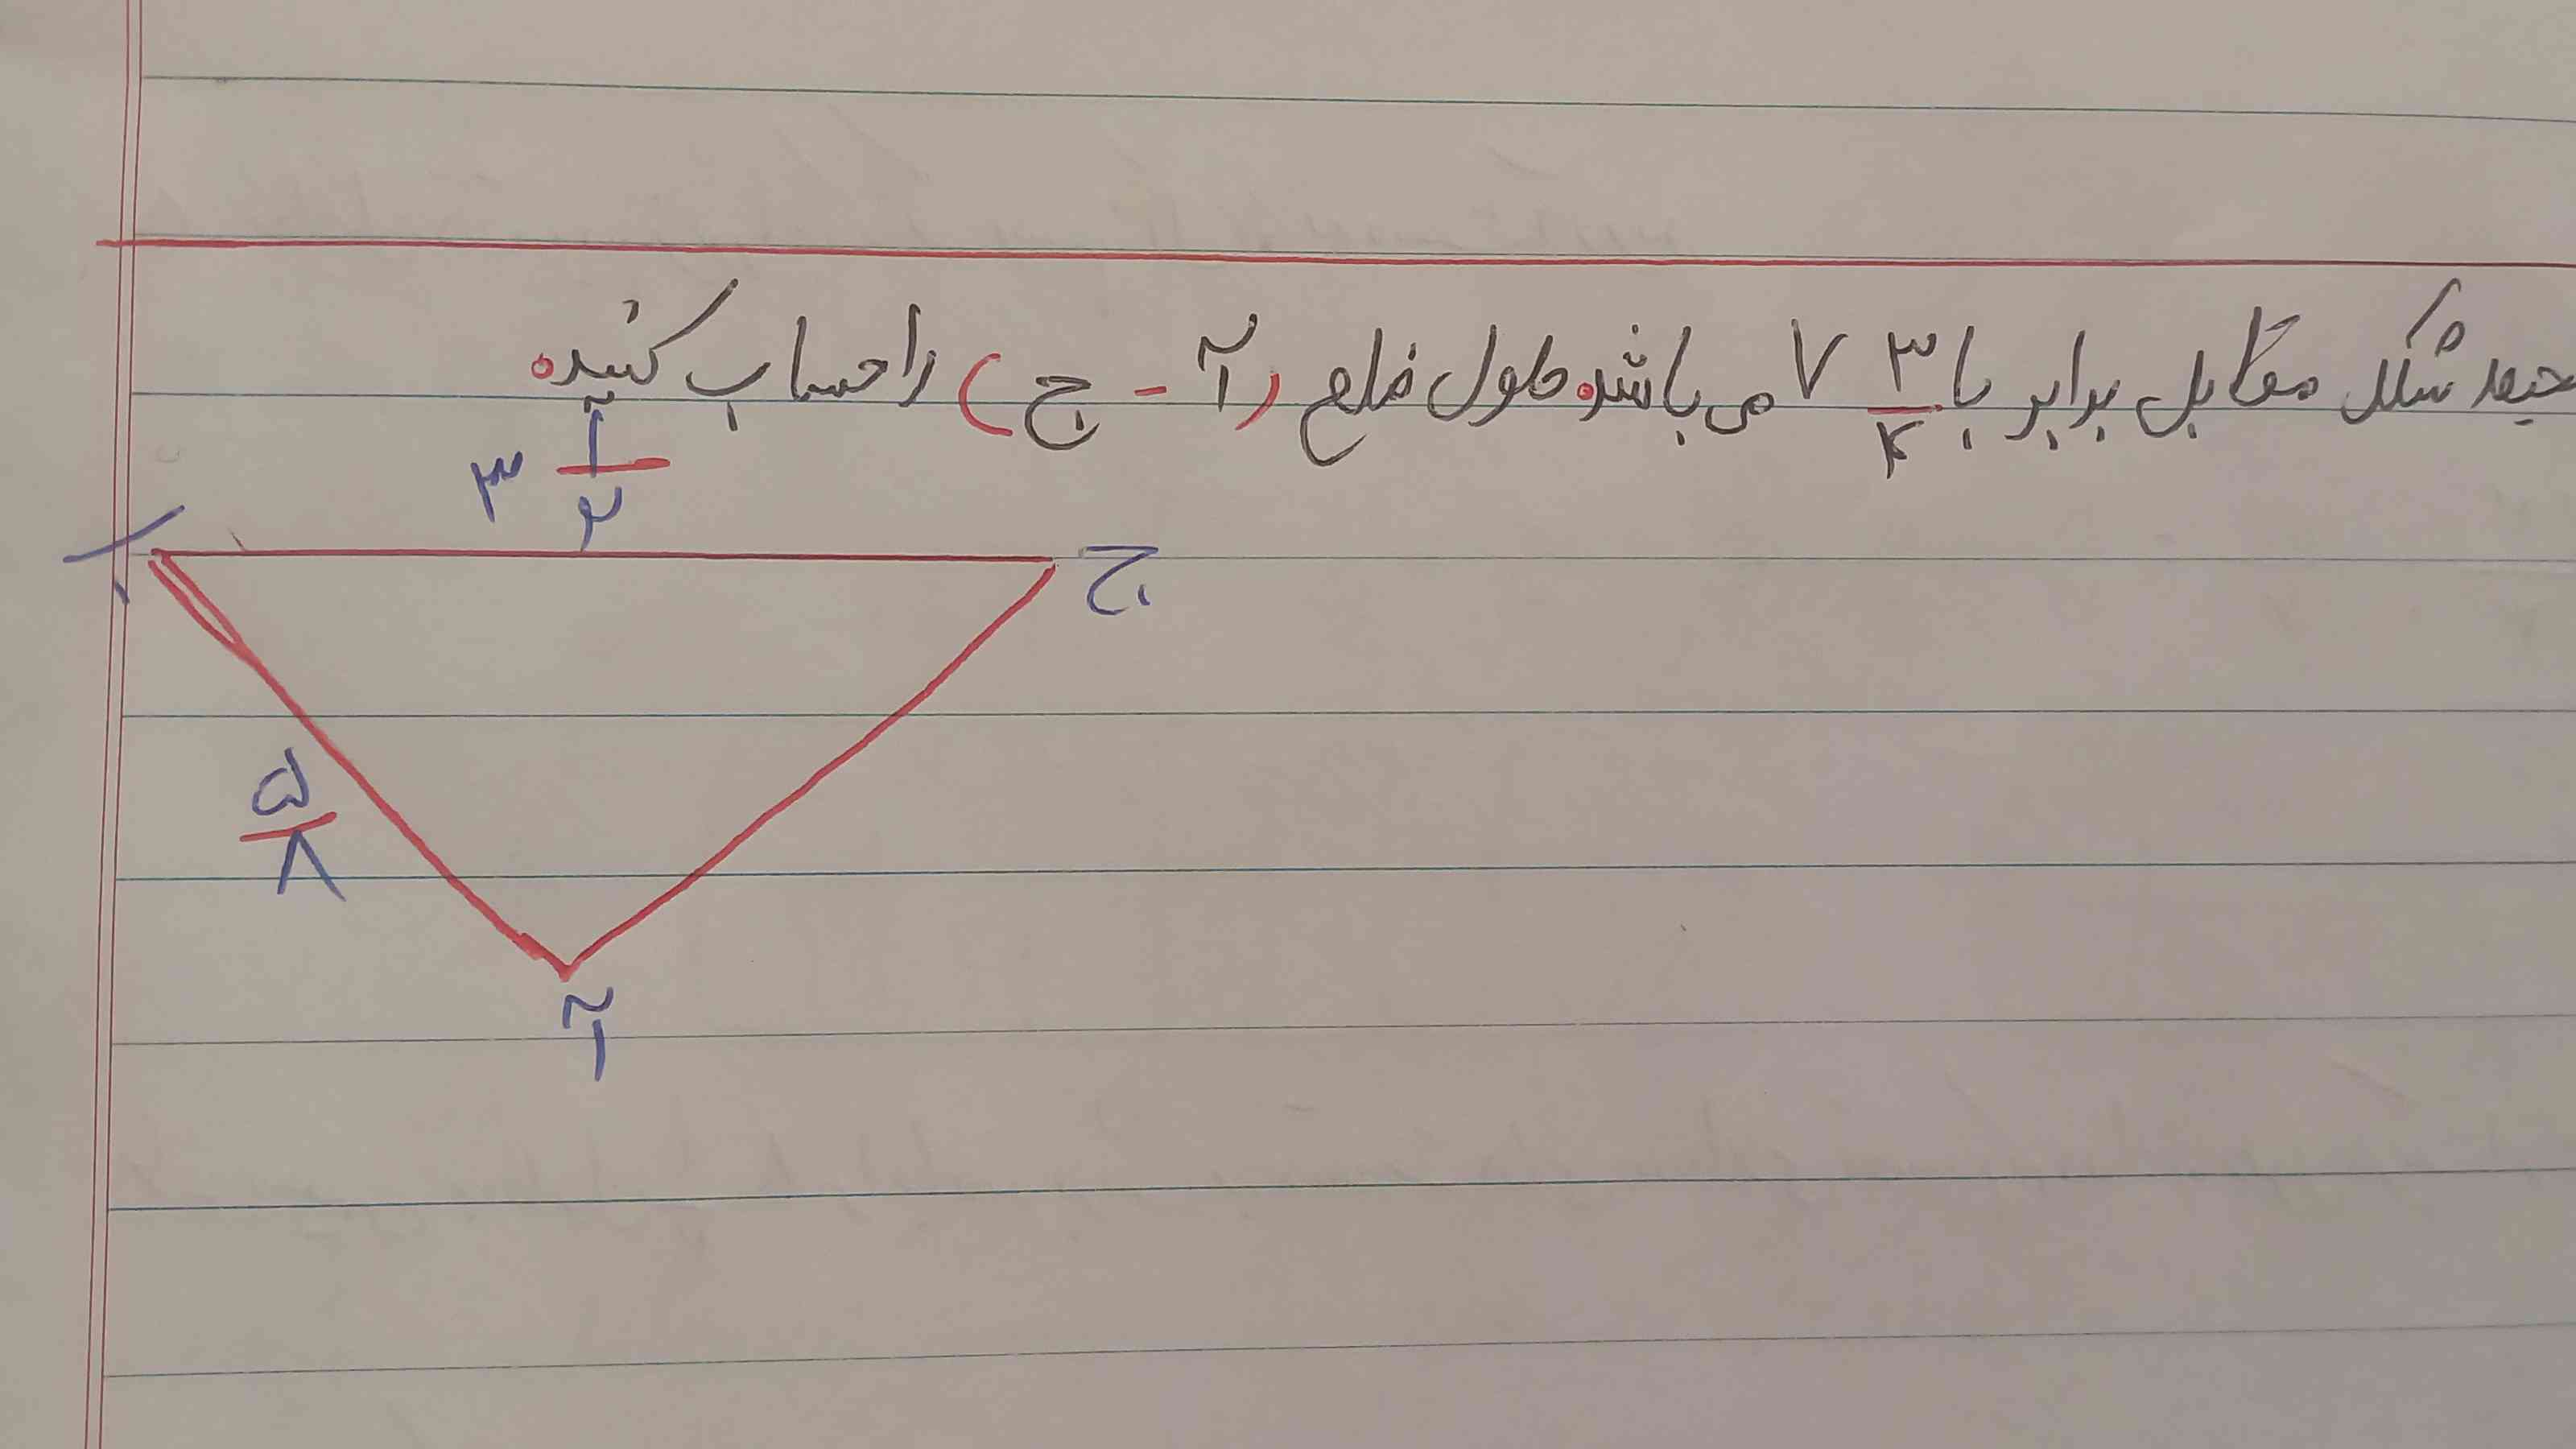 محیط شکل مقابل برابر با ۷ ۳/۴ می باشد. طول ضلع (آ - ج) را حساب کنید.
۳ ۱/۲
ج
۵/۸
آ